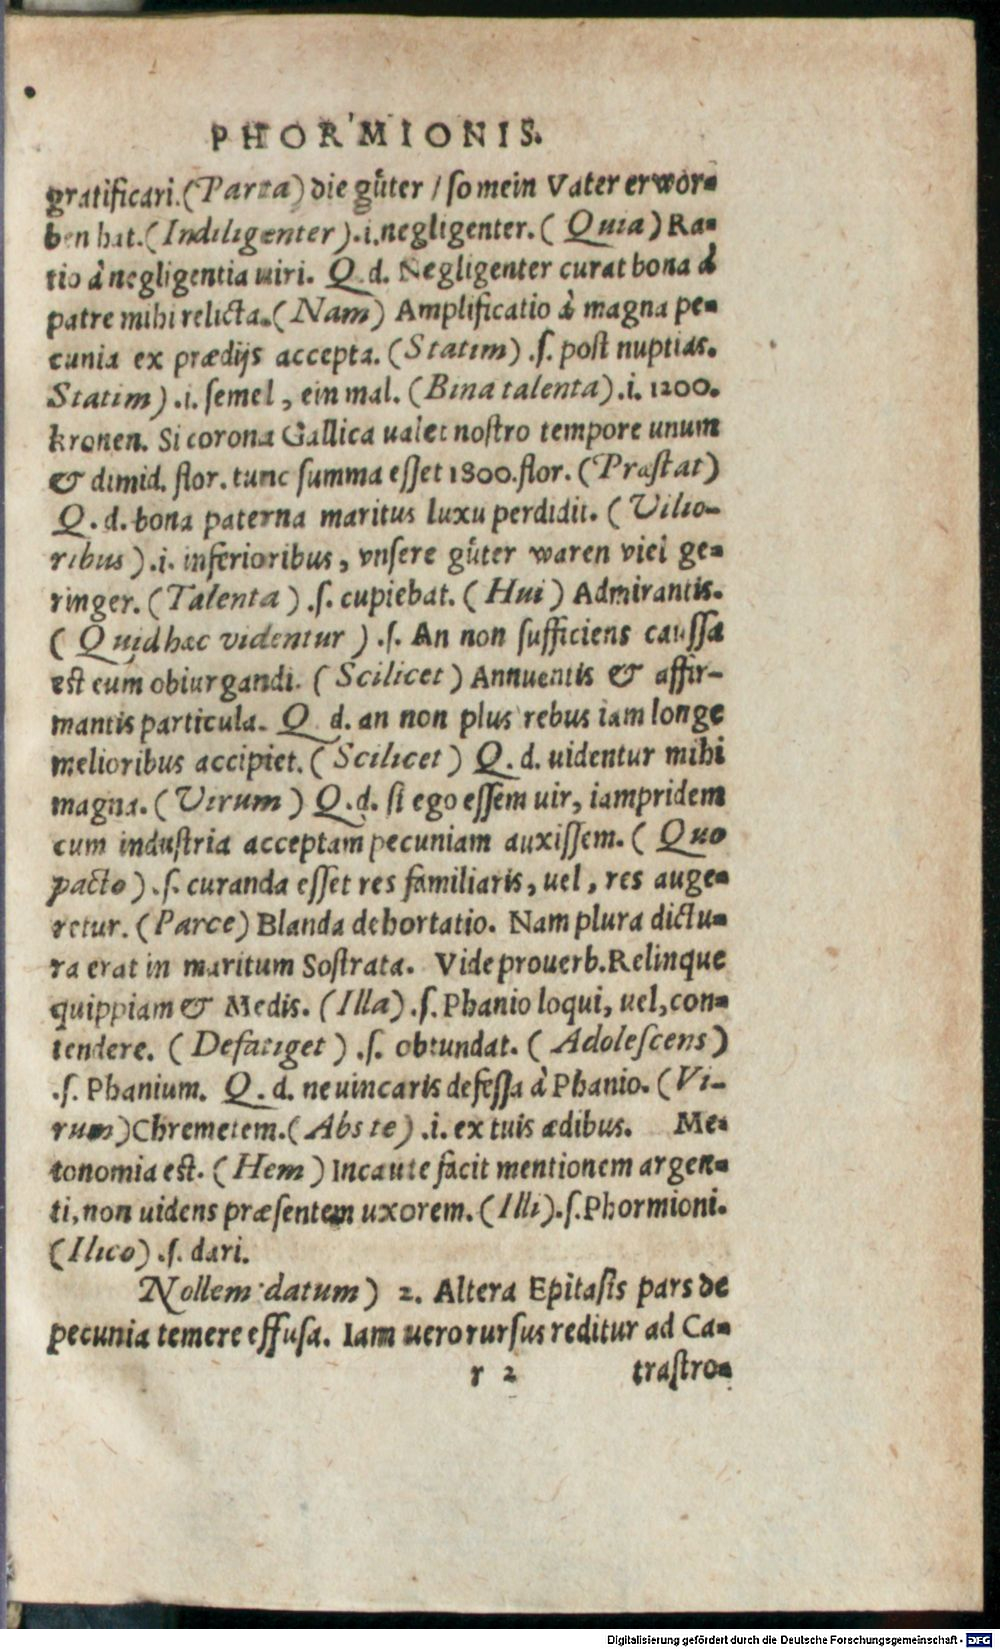 PHORMIONIS.
gratificari. (Parta) die güter / so mein Vater erwor-
ben hat. (Indiligenter) .i. negligenter. (Quia) Ra-
tio à negligentia uiri. Q. d. Negligenter curat bona à
patre mihi relicta. (Nam) Amplificatio à magna pe-
cunia ex prædijs accepta. (Statim) .ſ. poſt nuptias.
Statim) .i. ſemel, ein mal. (Bina talenta) .i. 1200.
kronen. Si corona Gallica ualet noſtro tempore unum
& dimid. flor. tunc ſumma eſſet 1800. flor. (Præſtat)
Q. d. bona paterna maritus luxu perdidit. (Vilio-
ribus) .i. inferioribus, vnſere güter waren viel ge-
ringer. (Talenta) .ſ. cupiebat. (Hui) Admirantis.
(Quid hæc videntur) .ſ. An non ſufficiens cauſſa
est eum obiurgandi. (Scilicet) Annuentis & affir-
mantis particula. Q. d. an non plus rebus iam longe
melioribus accipiet. (Scilicet) Q. d. uidentur mihi
magna. (Virum) Q. d. ſi ego eſſem uir, iampridem
cum induſtria acceptam pecuniam auxiſſem. (Quo
pacto) .ſ. curanda eſſet res familiaris, uel, res auge-
retur. (Parce) Blanda dehortatio. Nam plura dictu-
ra erat in maritum Soſtrata. Vide prouerb. Relinque
quippiam & Medis. (Illa) .ſ. Phanio loqui, uel, con-
tendere. (Defatiget) .ſ. obtundat. (Adoleſcens)
.ſ. Phanium. Q. d. ne uincaris defeſſa à Phanio. (Vi-
rum) Chremetem. (Abs te) .i. ex tuis ædibus. Me-
tonomia est. (Hem) Incaute facit mentionem argen-
ti, non uidens præſentem uxorem. (Illi) .ſ. Phormioni.
(Ilico) .ſ. dari.
Nollem datum) 2. Altera Epitaſis pars de
pecunia temere effuſa. Iam uero rurſus reditur ad Ca-
r 2 traſtro-
Digitalisierung gefördert durch die Deutsche Forschungsgemeinschaft - DFG